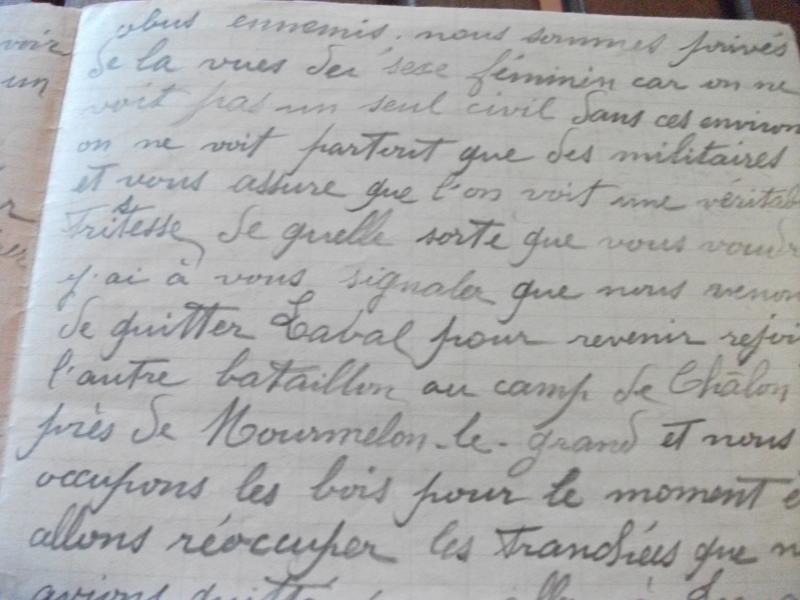 voir
un
obus ennemis. nous sommes privés
de la vues du sexe féminin car on ne
voit pas un seul civil dans ces environ
on ne voit partout que des militaires
et vous assure que l'on voit une véritab
Tristesse de quelle sorte que vous voudr
j'ai à vous signaler que nous venon
de quitter Laval pour revenir rejoi
l'autre bataillon au camp de Châlon
près de Mourmelon-le-grand et nous
occupons les bois pour le moment e
allons réoccuper les tranchées que n
avions quitté